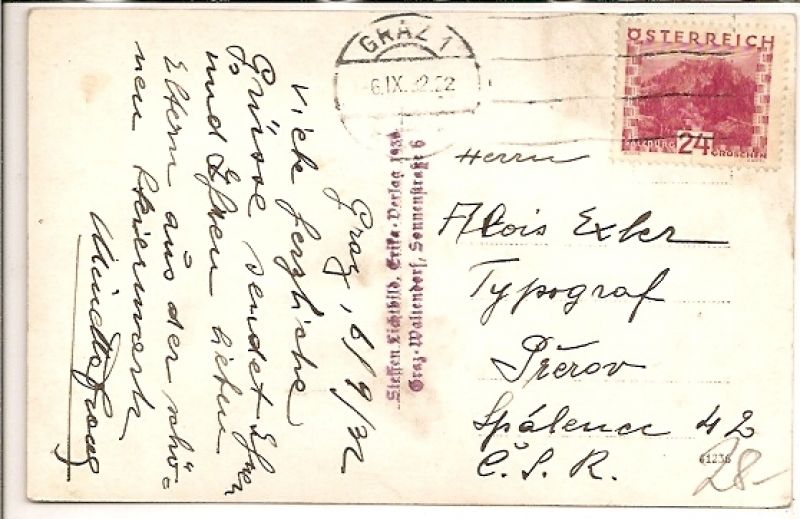 Graz, 6/9/32
Viele herzliche
Grüsse sendet Ihnen
und Ihren lieben
Eltern aus der schö-
nen Steiermark
Franz
GRAZ 1
6.IX.32
ÖSTERREICH
SALZBURG 24 GROSCHEN
Steffen Lichtbild, Erika-Verlag 1930
Graz-Waltendorf, Sonnenstraße 6
Herrn
Alois Exler
Typograf
Přerov
Spálenec 42
Č.S.R.
61236
28-